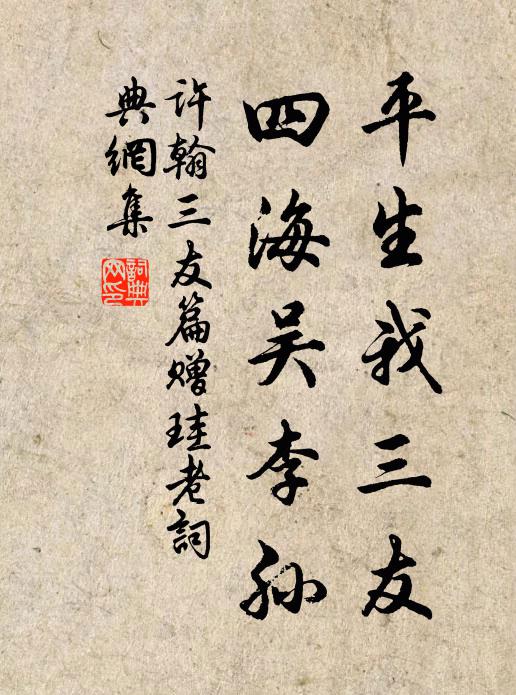 平生我三友
四海吴李孙
许翰三友篇赠珪老詞
典網集
詞典网印